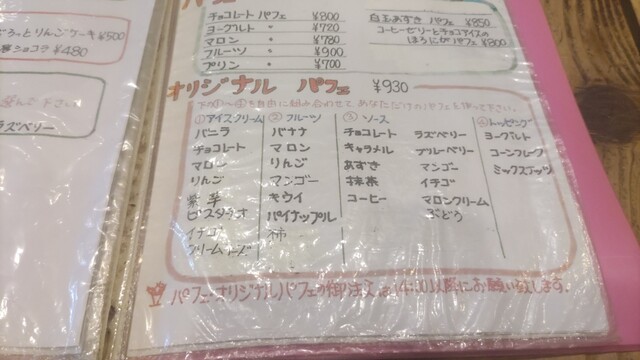 りんごケーキ ¥500
ショコラ ¥480
下さい
ラズベリー
パフェ
チョコレート パフェ ¥800
ヨーグルト 〃 ¥720
マロン 〃 ¥780
フルーツ 〃 ¥900
プリン 〃 ¥700
白玉あずき パフェ ¥850
コーヒーゼリーとチョコアイスの
ほろにがパフェ ¥800
オリジナル パフェ ¥930
下の①〜④を自由に組み合わせて あなただけのパフェを作って下さい。
①アイスクリーム ②フルーツ ③ソース ④トッピング
バニラ バナナ チョコレート ラズベリー ヨーグルト
チョコレート マロン キャラメル ブルーベリー コーンフレーク
マロン りんご あずき マンゴー ミックスナッツ
りんご マンゴー 抹茶 イチゴ
紫芋 キウイ コーヒー マロンクリーム
ピスタチオ パイナップル ぶどう
イチゴ 柿
クリームチーズ
パフェ・オリジナルパフェの御注文は14:00以降にお願い致します。